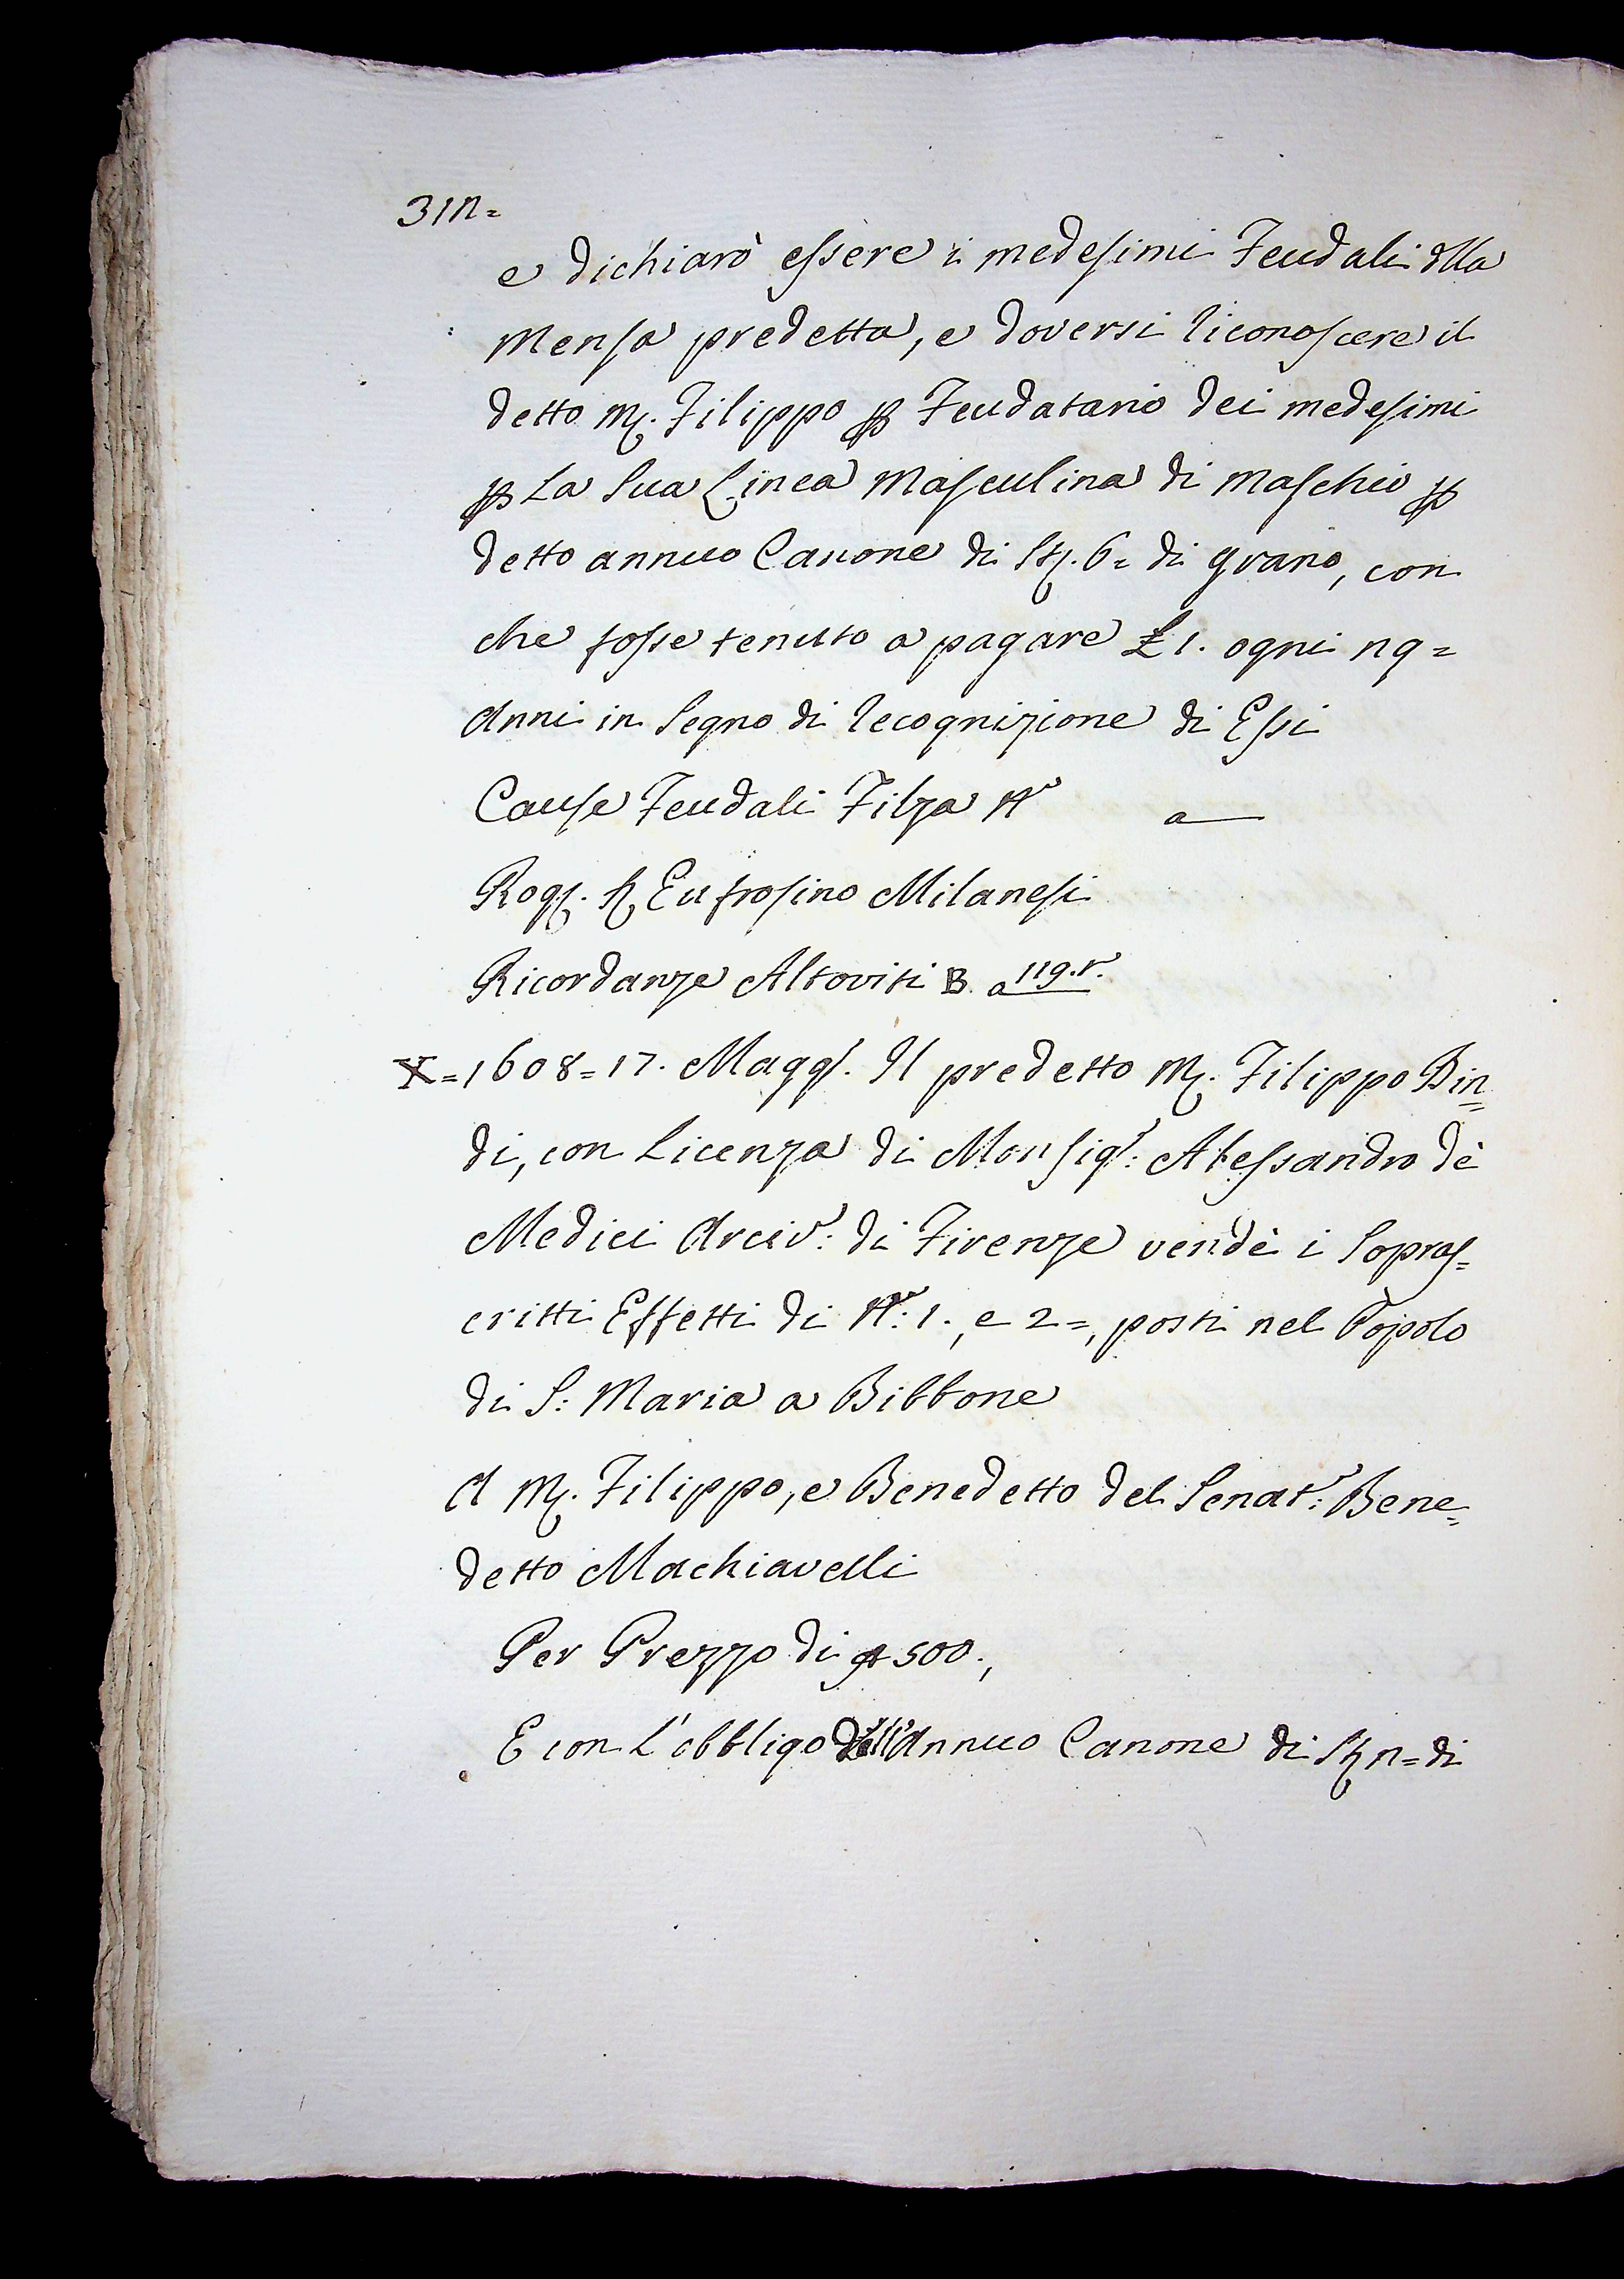 314=
e dichiarò essere i medesimi Feudali dlla
Mensa predetta, e doversi riconoscere il
detto M. Filippo p Feudatario dei medesimi
p La Sua Linea Masculina di Maschio p
detto annuo Canone di St. 6= di grano, con
che fosse tenuto a pagare £ 1. ogni 49=
Anni in Segno di recognizione di Essi
Cause Feudali Filza N.° a
Rog. S. Eufrosino Milanesi
Ricordanze Altoviti B. a 119.t.
X=1608=17. Magg. Il predetto M. Filippo Bin=
di, con Licenza di Monsig.r: Alessandro de'
Medici Arciv: di Firenze vendè i Sopras=
critti Effetti di N.°: 1., e 2=, posti nel Popolo
di S: Maria a Bibbone
A M. Filippo, e Benedetto del Senat.r: Bene=
detto Machiavelli
Per Prezzo di 500.,
E con L'obbligo dell'Annuo Canone di St 4= di